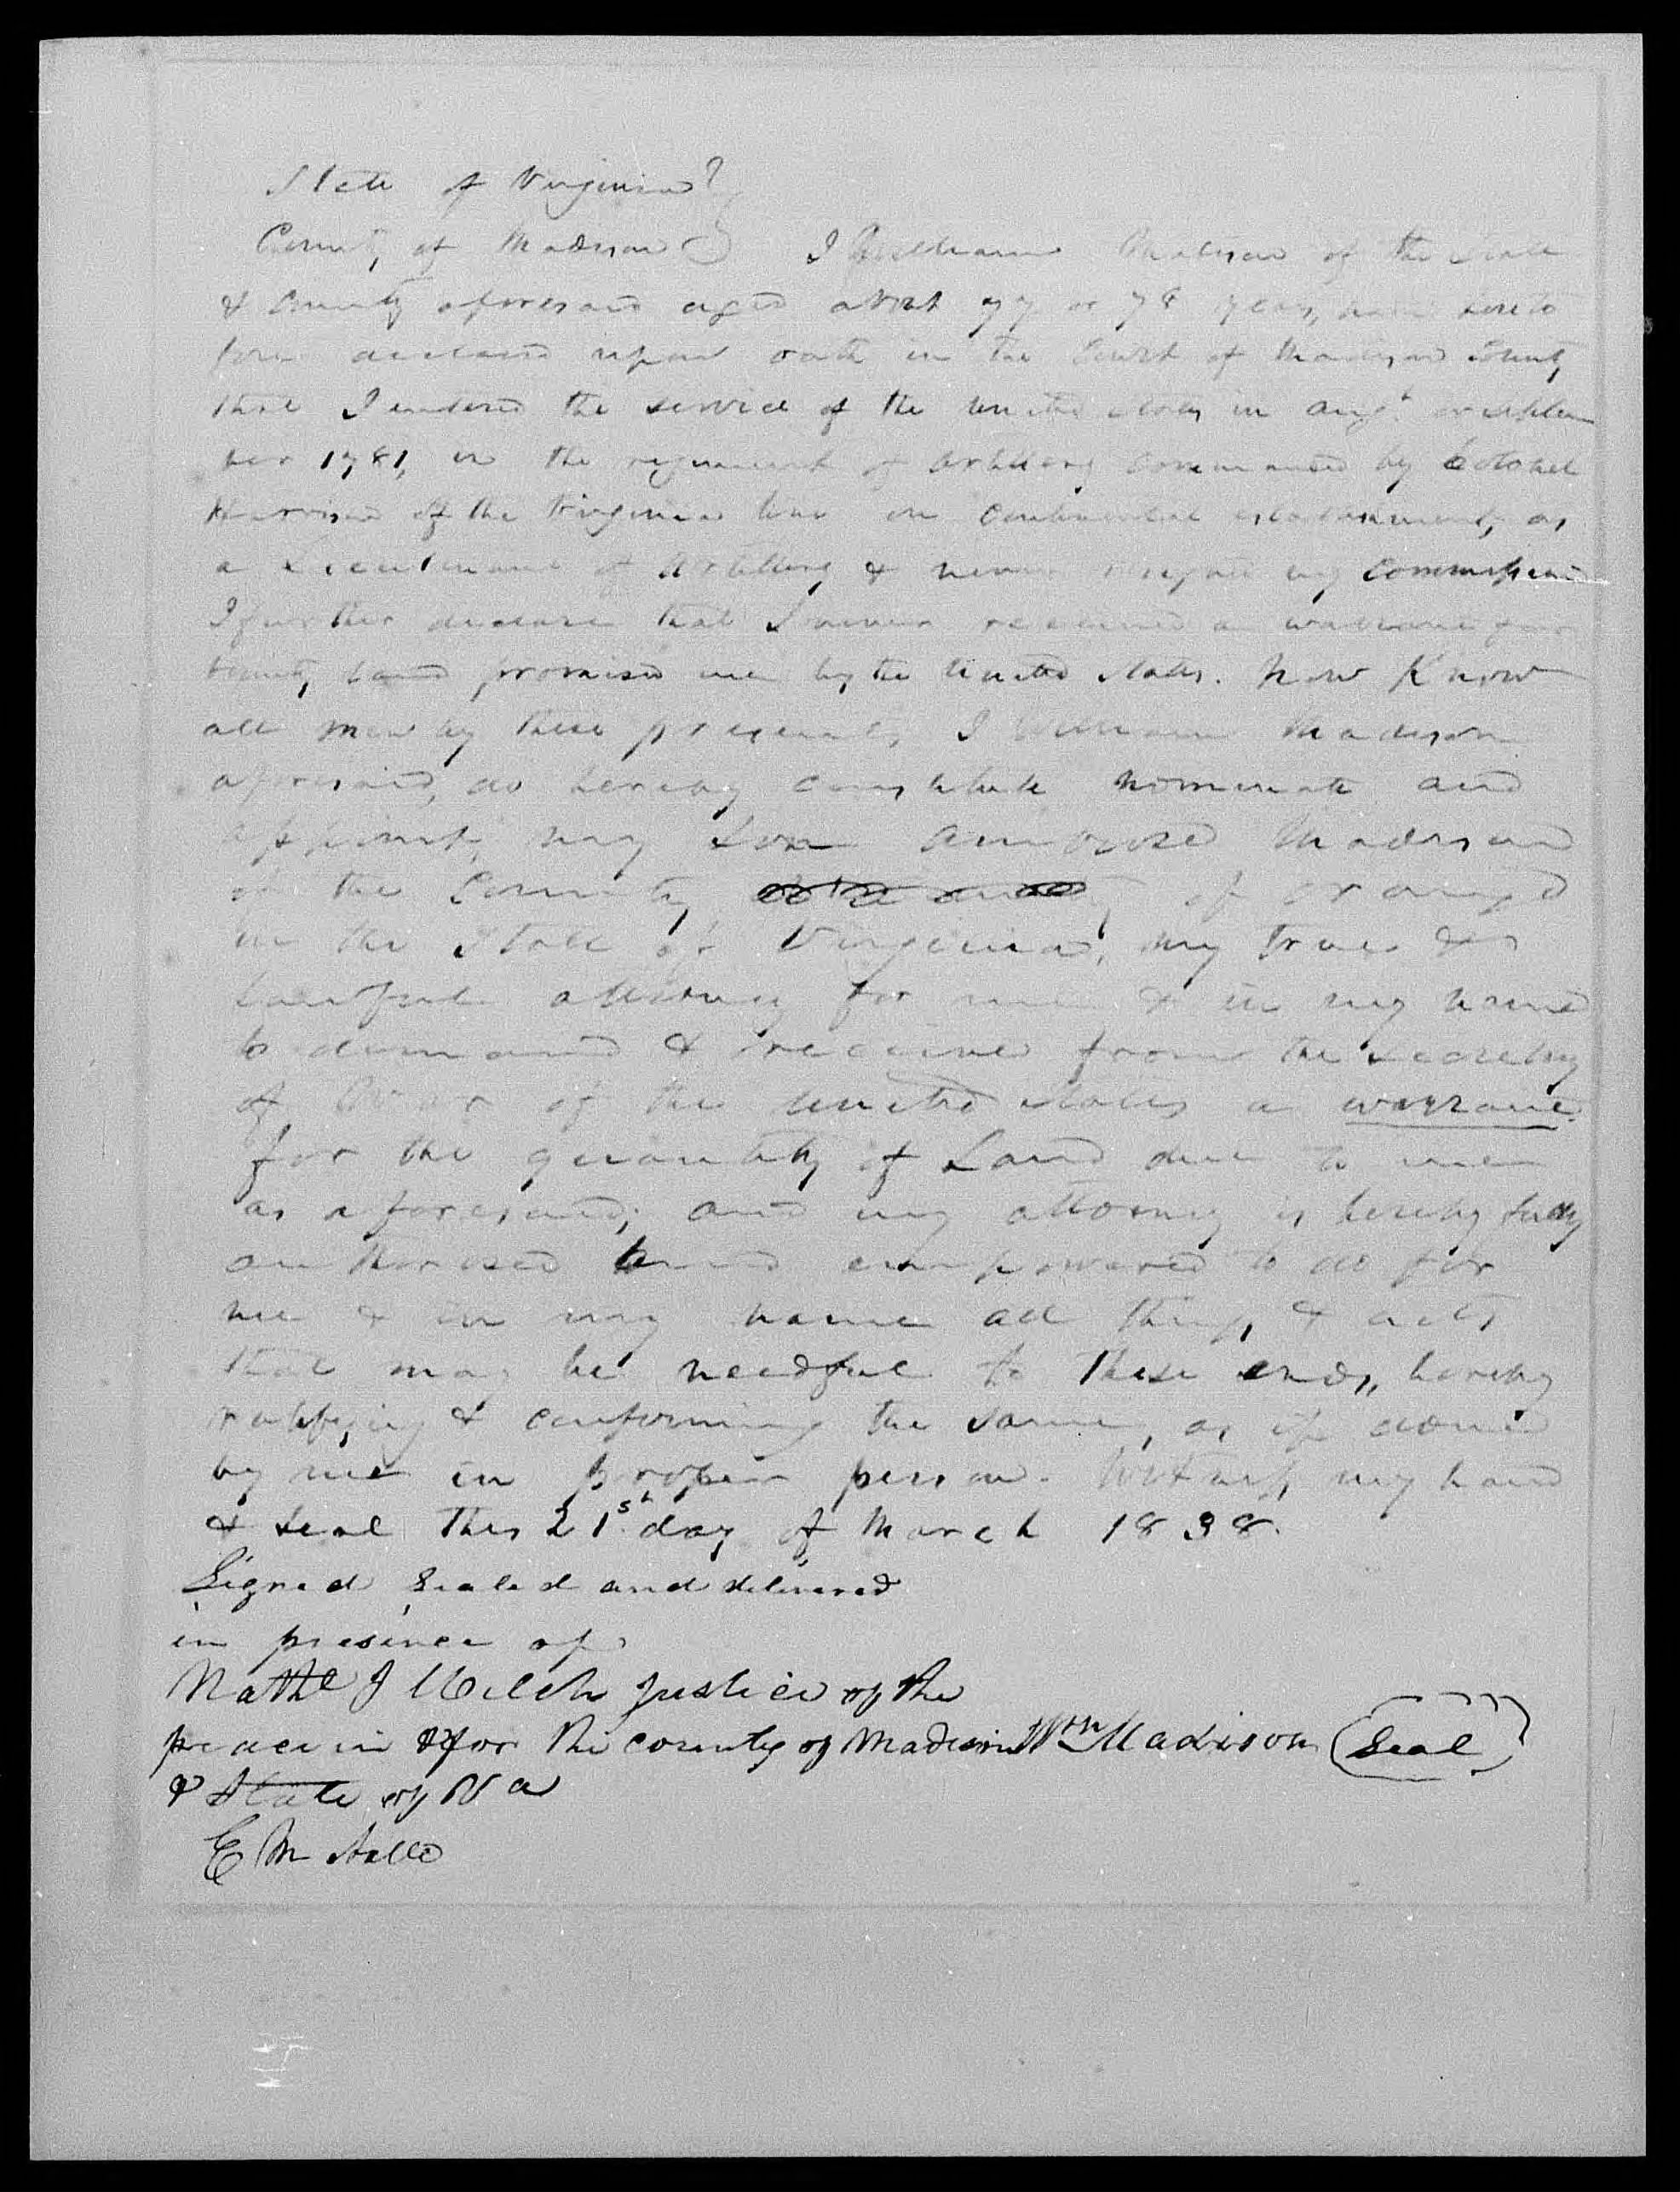 State of Virginia
County of Madison I William Madison of the State
& County aforesaid aged about 77 or 78 years, have hereto
fore declared upon oath in the Court of Madison County
that I entered the service of the United States in Augt or Septem
ber 1781, in the regiment of Artillery commanded by Colonel
Harrison of the Virginia line on Continental establishment, as
a Lieutenant of Artillery & never resigned my commission
I further declare that I never received a warrant for
bounty land promised me by the United States. Now Know
all men by these presents, I William Madison
aforesaid, do hereby constitute nominate and
appoint, my son Ambrose Madison
of the County of Orange
in the State of Virginia, my true &
lawful attorney for me & in my name
to demand & receive from the Secretary
of War of the United States a warrant
for the quantity of Land due to me
as aforesaid; and my attorney is hereby fully
authorised and empowered to do for
me & in my name all things & acts
that may be needful to these ends, hereby
ratifying & confirming the same, as if done
by me in proper person. Witness my hand
& seal this 21st day of March 1838.
Signed Sealed and delivered
in presence of
Nathl J Welch Justice of the
peace in & for the county of Madison Wm Madison Seal
& State of Va
E M